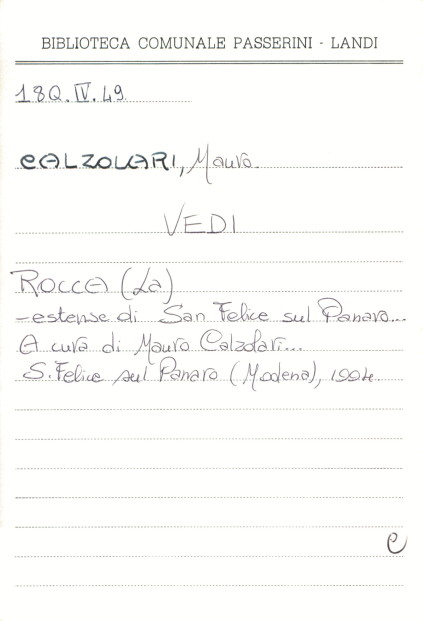 BIBLIOTECA COMUNALE PASSERINI - LANDI
18Q.IV.49
CALZOLARI, Mauro.
VEDI
ROCCA (La)
-estense di San Felice sul Panaro...
A cura di Mauro Calzolari...
S. Felice sul Panaro (Modena), 1994.
C